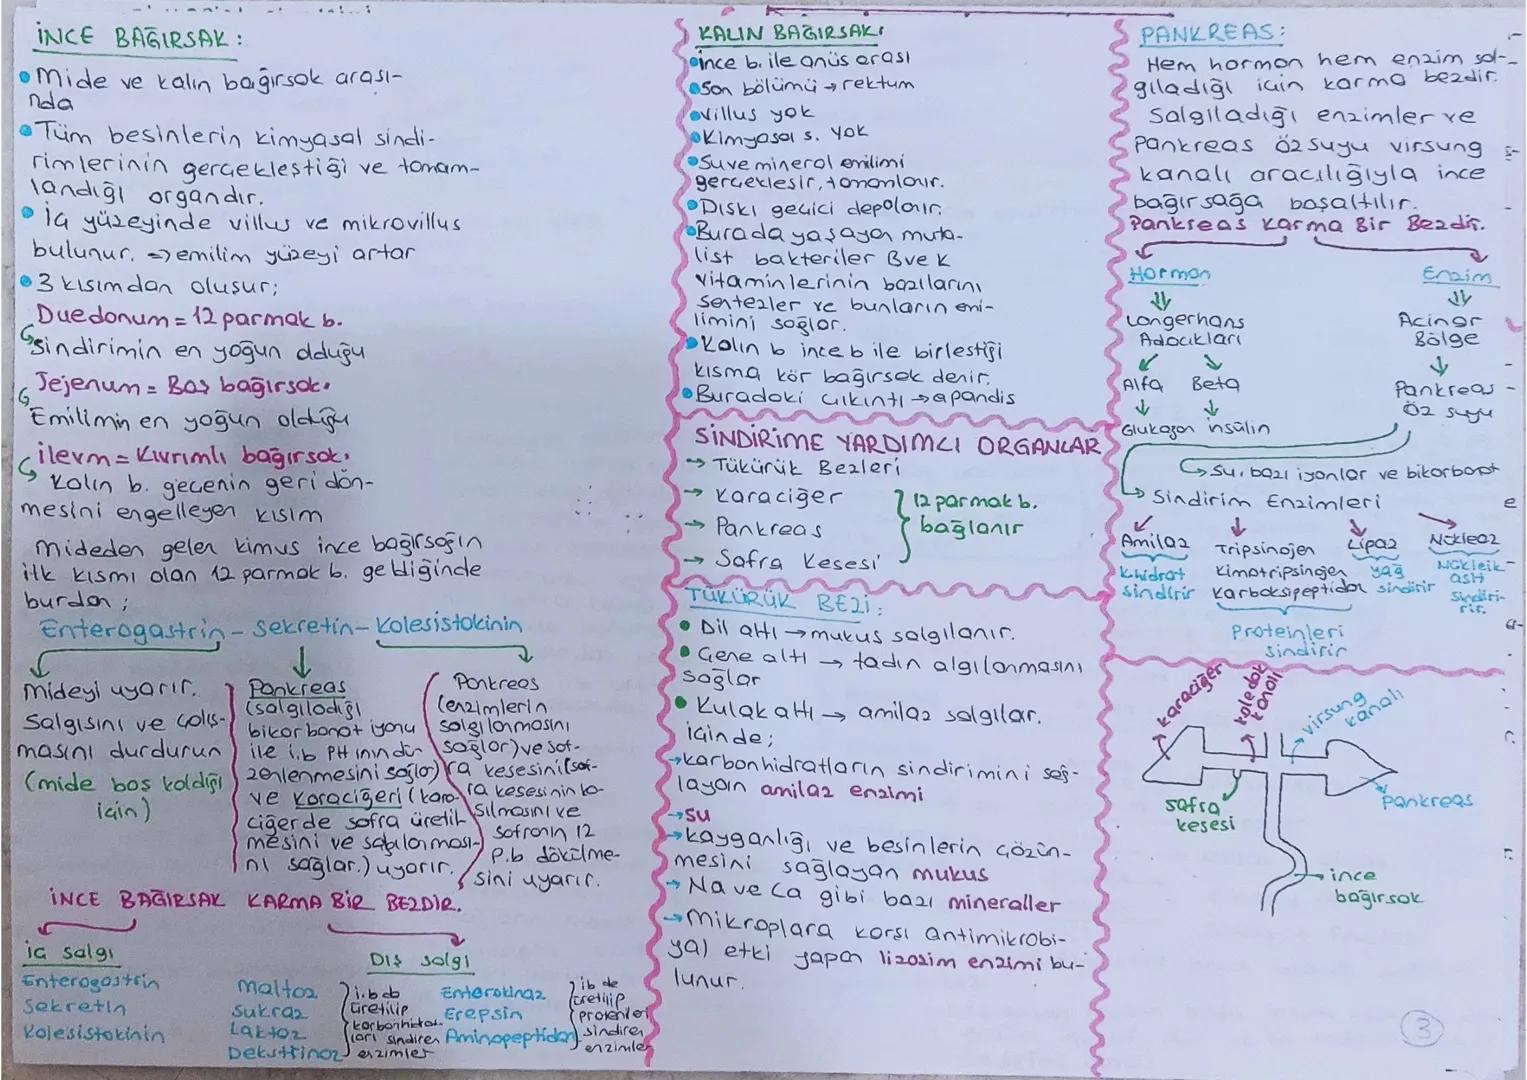 İNCE BAĞIRSAK:
• Mide ve kalın bağırsak arası-
nda
• Tüm besinlerin kimyasal sindi-
rimlerinin gerçekleştiği ve tamam-
landığı organdır.
• İç yüzeyinde villus ve mikrovillus
bulunur. => emilim yüzeyi artar
• 3 kısımdan oluşur;
Duedonum = 12 parmak b.
Sindirimin en yoğun olduğu
Jejenum = Boş bağırsak.
Emilimin en yoğun olduğu
ileum = Kıvrımlı bağırsak.
Kalın b. geçenin geri dön-
mesini engelleyen kısım
Mideden gelen kimus ince bağırsağın
ilk kısmı olan 12 parmak b. geldiğinde
burdan;
Enterogastrin - Sekretin - Kolesistokinin
Mideyi uyarır.
Salgısını ve çalış-
masını durdurun
(mide boş kaldığı
için)
Pankreas
(salgıladığı
bikarbonat iyonu
ile i.b PH ının dü-
zenlenmesini sağlar)
ve Karaciğeri (kara-
ciğerde safra üretil-
mesini ve salgılanması-
nı sağlar.) uyarır.
Pankreas
(enzimlerin
salgılanmasını
sağlar) ve saf-
ra kesesini (saf-
ra kesesinin ka-
sılmasını ve
safranın 12
p.b dökülme-
sini uyarır.
İNCE BAĞIRSAK KARMA BİR BEZDİR.
iç salgı
Enterogastrin
Sekretin
Kolesistokinin
Dış salgı
Maltaz
Sukraz
Laktoz
Dekstrinaz
i.b da
üretilip
karbonhidrat-
ları sindiren
enzimler
Enterokinaz
Erepsin
Aminopeptidaz
ib de
üretilip
proteinleri
sindiren
enzimler
KALIN BAĞIRSAK:
• ince b. ile anüs arası
• Son bölümü → rektum
• villus yok
• Kimyasal s. yok
• Su ve mineral emilimi
gerçekleşir, tamamlanır.
• Dışkı geçici depolanır.
• Burada yaşayan muta-
list bakteriler B ve K
vitaminlerinin bazılarını
sentezler ve bunların emi-
limini sağlar.
• Kalın b ince b ile birleştiği
kısma kör bağırsak denir.
• Buradaki çıkıntı → apandis
SİNDİRİME YARDIMCI ORGANLAR
→ Tükürük Bezleri
→ Karaciğer
→ Pankreas
→ Safra Kesesi
12 parmak b.
bağlanır
TÜKÜRÜK BEZİ:
• Dil altı → mukus salgılanır.
• Çene altı → tadın algılanmasını
sağlar
• Kulak altı → amilaz salgılar.
içinde;
→ karbonhidratların sindirimini sağ-
layan amilaz enzimi
→ su
→ kayganlığı ve besinlerin çözün-
mesini sağlayan mukus
→ Na ve Ca gibi bazı mineraller
→ Mikroplara karşı antimikrobi-
yal etki yapan lizozim enzimi bu-
lunur.
PANKREAS:
Hem hormon hem enzim sal-
gıladığı için karma bezdir.
Salgıladığı enzimler ve
pankreas öz suyu virsung
kanalı aracılığıyla ince
bağırsağa boşaltılır.
Pankreas Karma Bir Bezdir.
Hormon
Langerhans
Adacıkları
Alfa Beta
Glukagon insülin
Enzim
Acinar
Bölge
Pankreas
öz suyu
Su, bazı iyonlar ve bikarbonat
Sindirim Enzimleri
Amilaz
K.hidrat
sindirir
Tripsinojen
Kimotripsinojen
Karboksipeptidaz
Proteinleri
sindirir
Lipaz
yağ
sindirir
Nükleaz
Nükleik
asit
sindiri-
rir.
karaciğer
koledok
kanalı
virsung
kanalı
safra
kesesi
Pankreas
ince
bağırsak
3